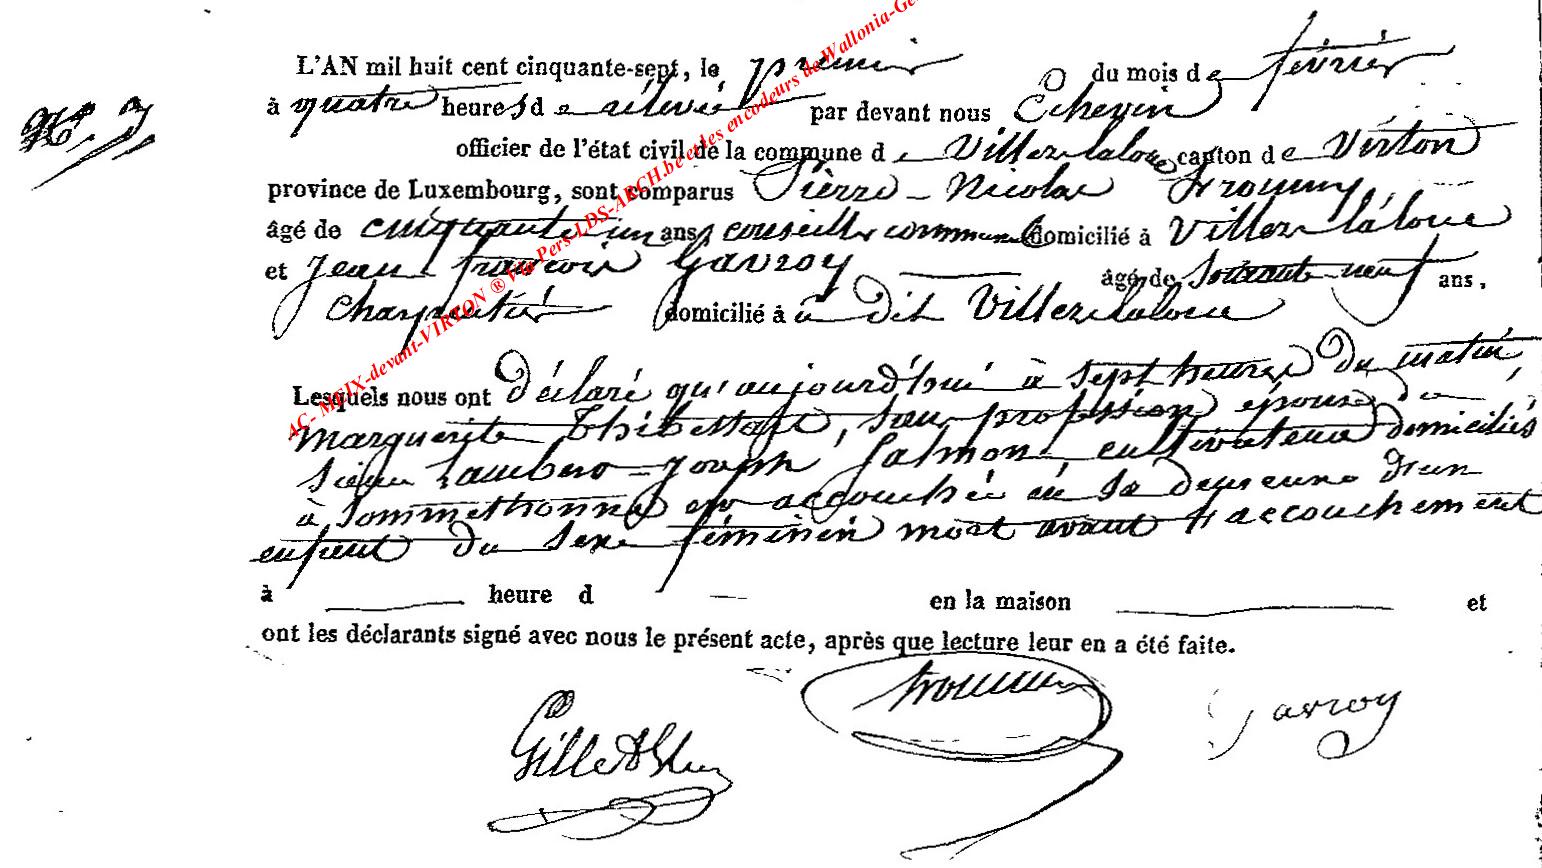 L'AN mil huit cent cinquante-sept, le premier du mois de février
N.° 3,
à quatre heures de rélevée par devant nous Echevin
officier de l'état civil de la commune de Villerslaloue canton de Virton
province de Luxembourg, sont comparus Pierre-Nicolas
âgé de cinquante un ans, conseiller communal domicilié à Villers laloue
et Jean françois Gavroy âgé de soixante-neuf ans,
charpentier domicilié à à dit Villerslaloue
Lesquels nous ont déclaré qu'aujourd'hui à sept heures du matin,
marguerite sans profession épouse de
sieur Lambert-Joseph Salmon cultivateur domiciliés
à Sommethonne est accouchée en sa demeure d'un
enfant du sexe féminin mort avant l'accouchement
à heure d en la maison et
ont les déclarants signé avec nous le présent acte, après que lecture leur en a été faite.
Gavroy
AC- MEIX-devant-VIRTON ® Via Pers-LDS-ARCH.be et les encodeurs de Wallonia-Ge